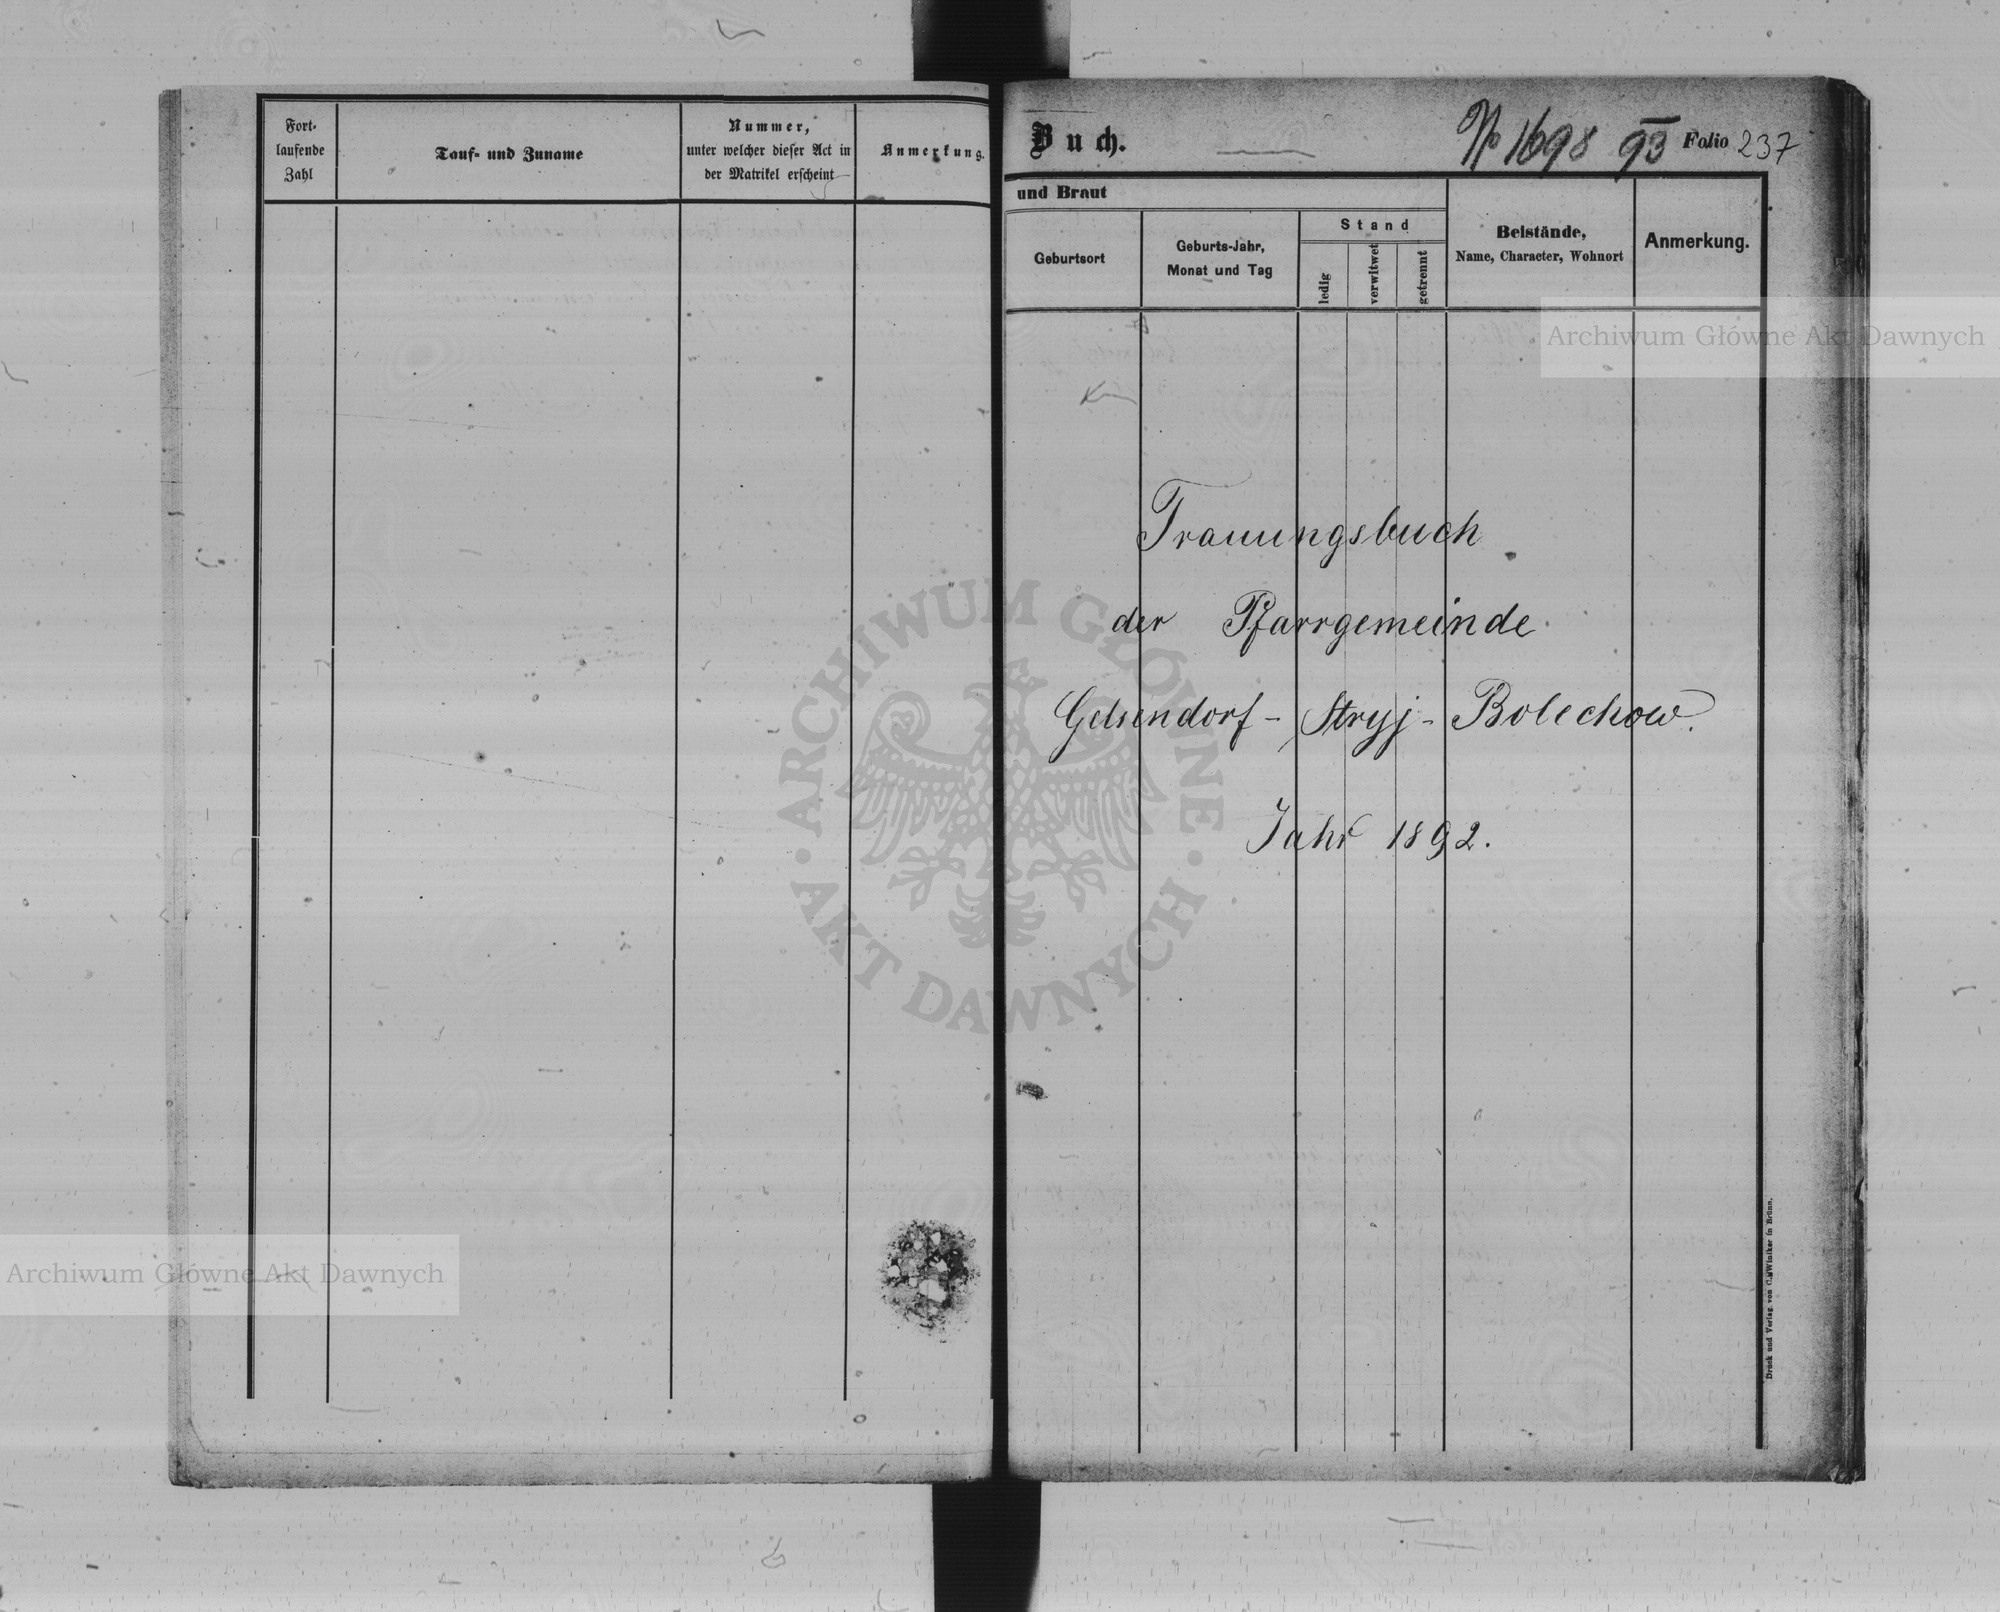 Fort-
laufende
Zahl
Tauf- und Zuname
Nummer,
unter welcher dieser Act in
der Matrikel erscheint
Anmerkung.
Buch.
No 1698 93 Folio 237
und Braut
Geburtsort
Geburts-Jahr,
Monat und Tag
Stand
ledig
verwitwet
getrennt
Beistände,
Name, Character, Wohnort
Anmerkung.
Trauungsbuch
der Pfarrgemeinde
Gelsendorf - Stryj - Bolechow.
Jahr 1892.
Druck und Verlag von C. Winiker in Brünn.
Archiwum Główne Akt Dawnych
ARCHIWUM GŁÓWNE
AKT DAWNYCH
Archiwum Główne Akt Dawnych